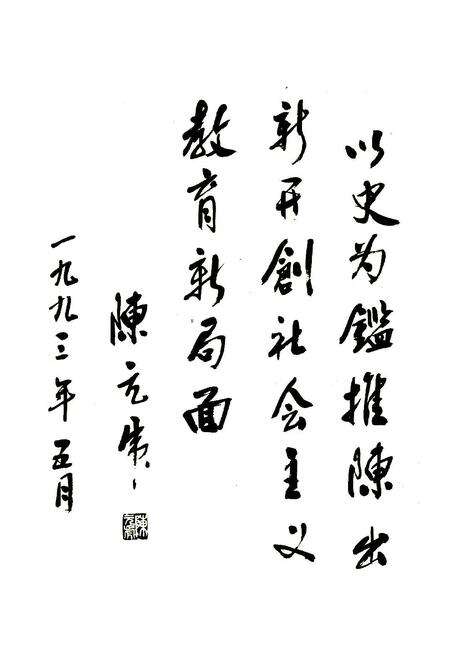 以史为鑑推陳出
新开創社会主义
教育新局面
陳元
一九九三年五月